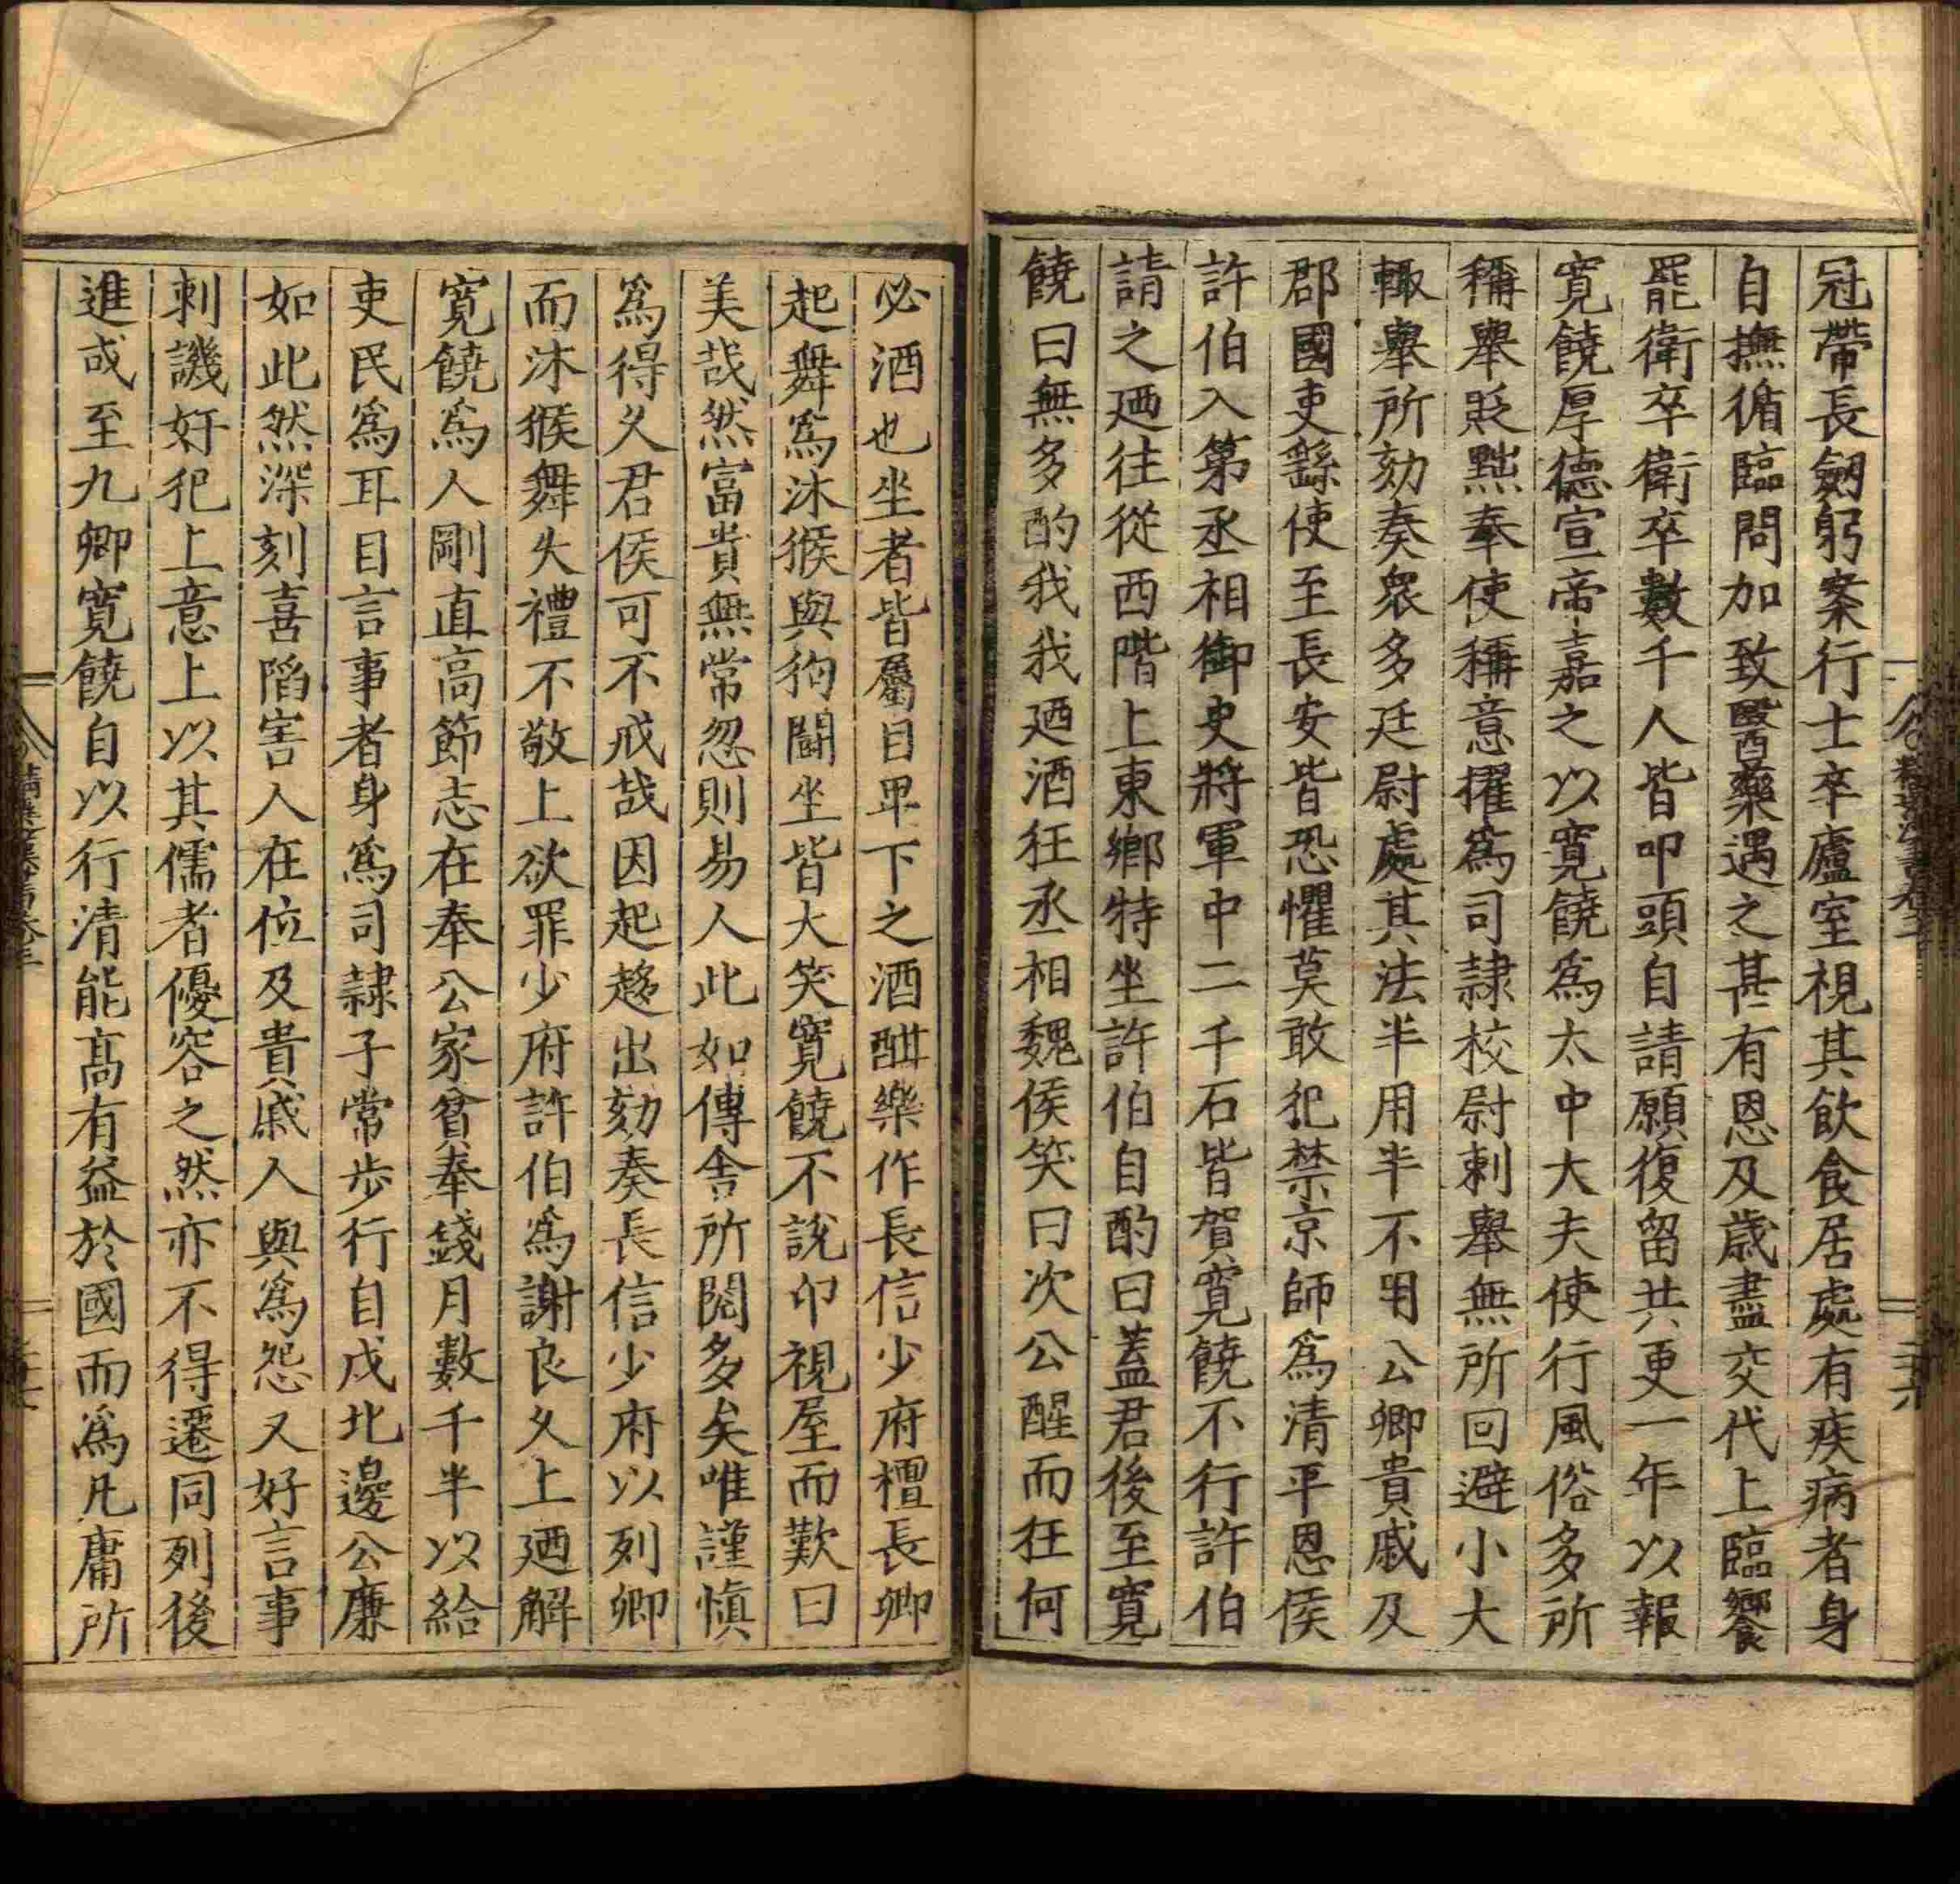 冠帶長劒躬案行士卒廬室視其飲食居處有疾病者身
自撫循臨問加致醫藥遇之甚有恩及歳盡交代上臨饗
罷衛卒衛卒數千人皆叩頭自請願復留共更一年以報
寛饒厚德宣帝嘉之以寛饒爲太中大夫使行風俗多所
稱舉貶黜奉使稱意擢爲司隷校尉刺舉無所回避小大
輙舉所劾奏衆多廷尉處其法半用半不用公卿貴戚及
郡國吏繇使至長安皆恐懼莫敢犯禁京師爲清平恩侯
許伯入第丞相御史將軍中二千石皆賀寛饒不行許伯
請之廼往從西階上東鄉特坐許伯自酌曰蓋君後至寛
饒曰無多酌我我廼酒狂丞相魏侯笑曰次公醒而狂何
必酒也坐者皆屬目卑下之酒酣樂作長信少府檀長卿
起舞爲沐猴與狗鬬坐皆大笑寛饒不說卬視屋而歎曰
美哉然富貴無常忽則易人此如傳舍所閱多矣唯謹慎
爲得久君侯可不戒哉因起趍出劾奏長信少府以列卿
而沐猴舞失禮不敬上欲罪少府許伯爲謝良久上廼解
寛饒爲人剛直高節志在奉公家貧奉錢月數千半以給
吏民爲耳目言事者身爲司隷子常歩行自戍北邊公廉
如此然深刻喜陷害人在位及貴戚人與爲怨又好言事
刺譏奸犯上意上以其儒者優容之然亦不得遷同列後
進或至九卿寛饒自以行清能髙有益於國而爲凡庸所